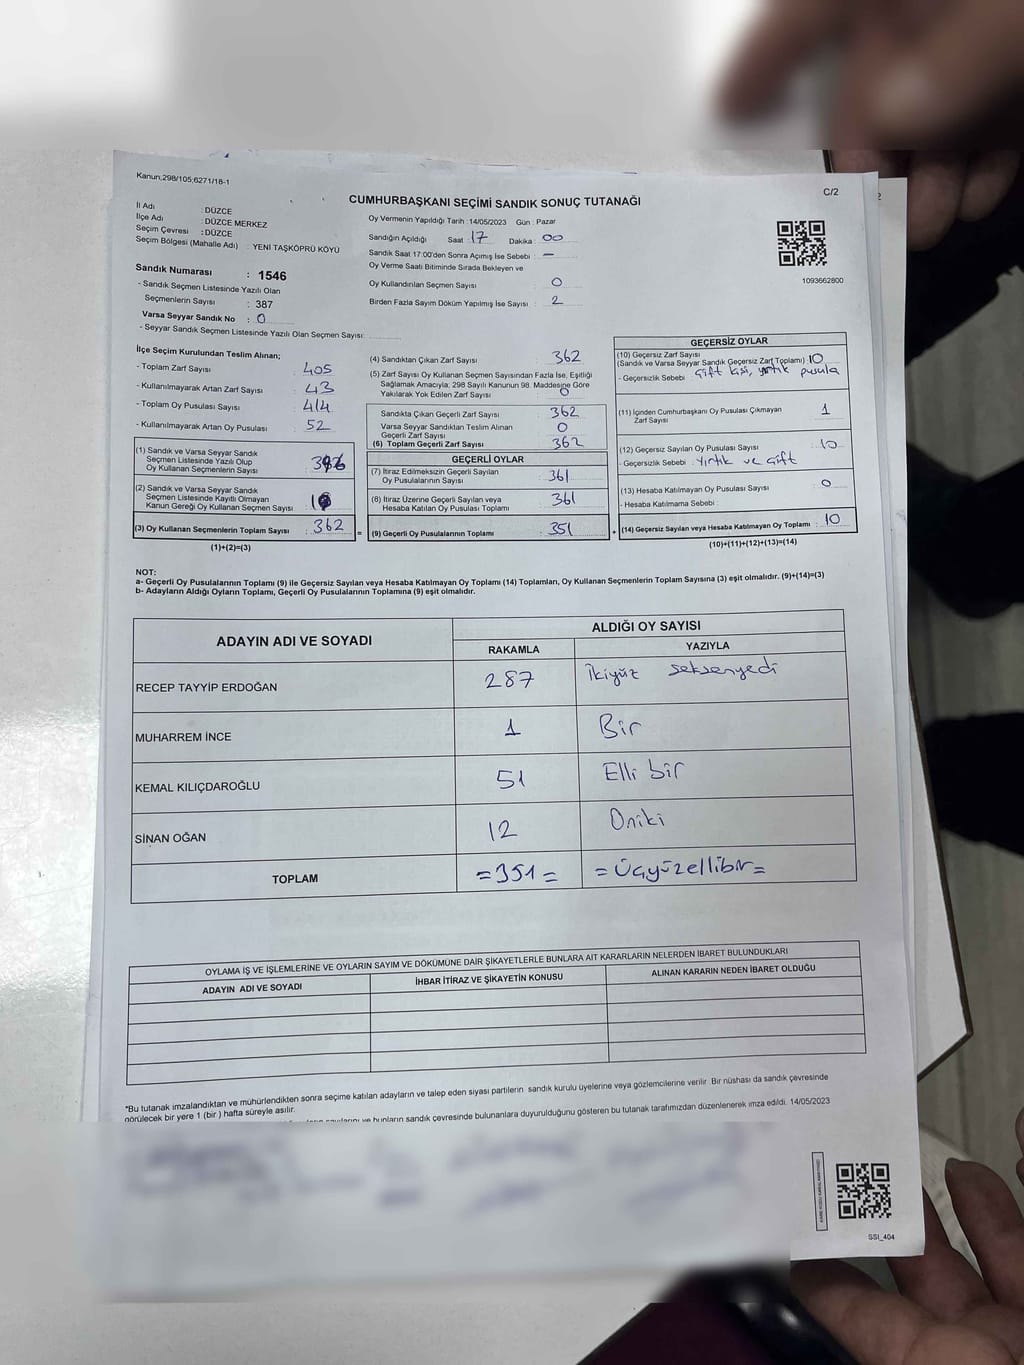 Kanun,298/105;6271/18-1
C/2
CUMHURBAŞKANI SEÇİMİ SANDIK SONUÇ TUTANAĞI
İl Adı : DÜZCE
İlçe Adı : DÜZCE MERKEZ
Seçim Çevresi : DÜZCE
Seçim Bölgesi (Mahalle Adı) : YENİ TAŞKÖPRÜ KÖYÜ
Sandık Numarası : 1546
- Sandık Seçmen Listesinde Yazılı Olan
Seçmenlerin Sayısı : 387
Varsa Seyyar Sandık No : 0
- Seyyar Sandık Seçmen Listesinde Yazılı Olan Seçmen Sayısı:
Oy Vermenin Yapıldığı Tarih : 14/05/2023 Gün : Pazar
Sandığın Açıldığı Saat 17 Dakika : 00
Sandık Saat 17:00'den Sonra Açımış İse Sebebi : -
Oy Verme Saati Bitiminde Sırada Bekleyen ve
Oy Kullandırılan Seçmen Sayısı : 0
Birden Fazla Sayım Döküm Yapılmış İse Sayısı : 2
1093662800
İlçe Seçim Kurulundan Teslim Alınan;
- Toplam Zarf Sayısı : 405
- Kullanılmayarak Artan Zarf Sayısı : 43
- Toplam Oy Pusulası Sayısı : 414
- Kullanılmayarak Artan Oy Pusulası : 52
(1) Sandık ve Varsa Seyyar Sandık
Seçmen Listesinde Yazılı Olup
Oy Kullanan Seçmenlerin Sayısı :
(2) Sandık ve Varsa Seyyar Sandık
Seçmen Listesinde Kayıtlı Olmayan
Kanun Gereği Oy Kullanan Seçmen Sayısı :
(3) Oy Kullanan Seçmenlerin Toplam Sayısı : 362
(1)+(2)=(3)
(4) Sandıktan Çıkan Zarf Sayısı : 362
(5) Zarf Sayısı Oy Kullanan Seçmen Sayısından Fazla İse, Eşitliği
Sağlamak Amacıyla; 298 Sayılı Kanunun 98. Maddesine Göre
Yakılarak Yok Edilen Zarf Sayısı : 0
Sandıkta Çıkan Geçerli Zarf Sayısı : 362
Varsa Seyyar Sandıktan Teslim Alınan
Geçerli Zarf Sayısı : 0
(6) Toplam Geçerli Zarf Sayısı : 362
GEÇERLİ OYLAR
(7) İtiraz Edilmeksizin Geçerli Sayılan
Oy Pusulalarının Sayısı : 361
(8) İtiraz Üzerine Geçerli Sayılan veya
Hesaba Katılan Oy Pusulası Toplamı : 361
= (9) Geçerli Oy Pusulalarının Toplamı : 351
GEÇERSİZ OYLAR
(10) Geçersiz Zarf Sayısı
(Sandık ve Varsa Seyyar Sandık Geçersiz Zarf Toplamı) : 10
- Geçersizlik Sebebi : yırtık pusula
(11) İçinden Cumhurbaşkanı Oy Pusulası Çıkmayan
Zarf Sayısı : 1
(12) Geçersiz Sayılan Oy Pusulası Sayısı : 10
- Geçersizlik Sebebi : Yırtık ve çift
(13) Hesaba Katılmayan Oy Pusulası Sayısı : 0
- Hesaba Katılmama Sebebi :
+ (14) Geçersiz Sayılan veya Hesaba Katılmayan Oy Toplamı : 10
(10)+(11)+(12)+(13)=(14)
NOT:
a- Geçerli Oy Pusulalarının Toplamı (9) ile Geçersiz Sayılan veya Hesaba Katılmayan Oy Toplamı (14) Toplamları, Oy Kullanan Seçmenlerin Toplam Sayısına (3) eşit olmalıdır. (9)+(14)=(3)
b- Adayların Aldığı Oyların Toplamı, Geçerli Oy Pusulalarının Toplamına (9) eşit olmalıdır.
ADAYIN ADI VE SOYADI ALDIĞI OY SAYISI
RAKAMLA YAZIYLA
RECEP TAYYİP ERDOĞAN 287 İkiyüz seksenyedi
MUHARREM İNCE 1 Bir
KEMAL KILIÇDAROĞLU 51 Elli bir
SİNAN OĞAN 12 Oniki
TOPLAM =351= =Üçyüzellibir=
OYLAMA İŞ VE İŞLEMLERİNE VE OYLARIN SAYIM VE DÖKÜMÜNE DAİR ŞİKAYETLERLE BUNLARA AİT KARARLARIN NELERDEN İBARET BULUNDUKLARI
ADAYIN ADI VE SOYADI İHBAR İTİRAZ VE ŞİKAYETİN KONUSU ALINAN KARARIN NEDEN İBARET OLDUĞU
*Bu tutanak imzalandıktan ve mühürlendikten sonra seçime katılan adayların ve talep eden siyasi partilerin sandık kurulu üyelerine veya gözlemcilerine verilir. Bir nüshası da sandık çevresinde
görülecek bir yere 1 (bir ) hafta süreyle asılır.
ve bunların sandık çevresinde bulunanlara duyurulduğunu gösteren bu tutanak tarafımızdan düzenlenerek imza edildi. 14/05/2023
SSI_404